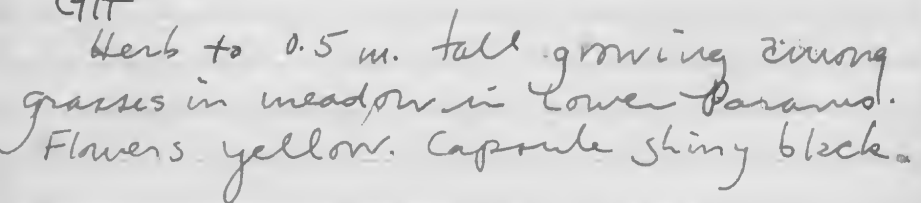 Herb to 0.5 m. tall growing among
grasses in meadow in Lower Paramo.
Flowers yellow. Capsule shiny black.